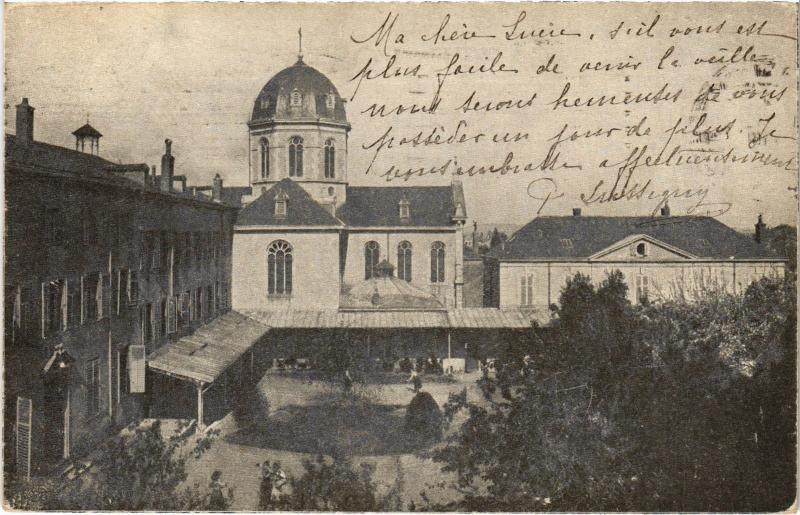 Ma chère Lucie, s'il vous est
plus facile de venir la veille
nous serons heureuses de vous
posséder un jour de plus. Je
vous embrasse affectueusement